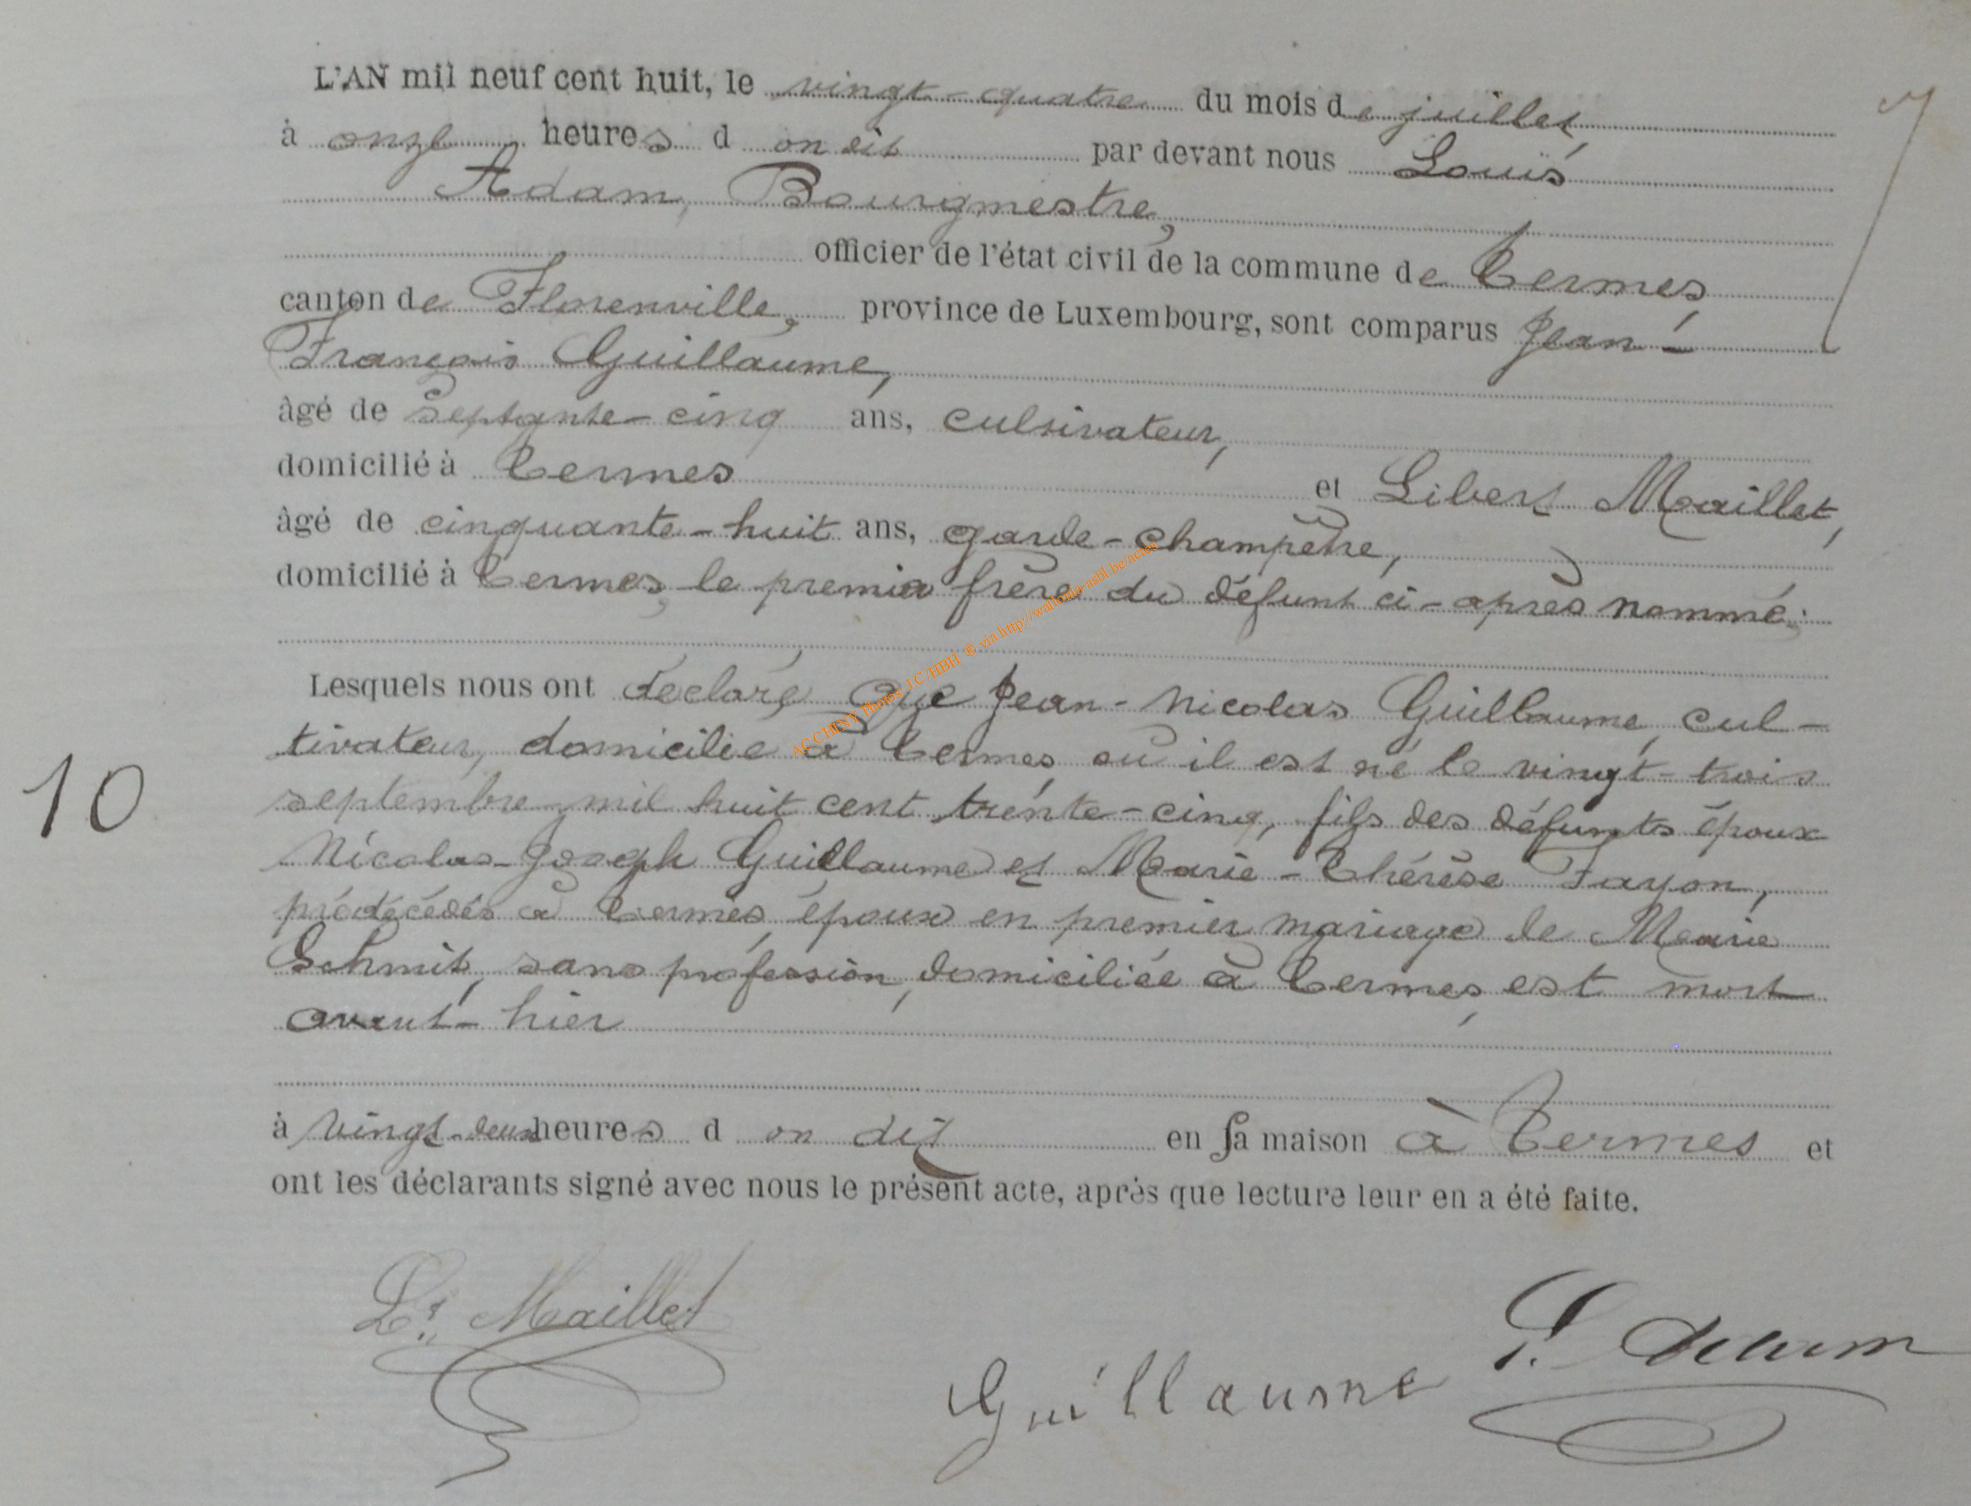 L'AN mil neuf cent huit, le vingt-quatre du mois de juillet,
à onze heures d on dit par devant nous Louis
Adam, Bourgmestre,
officier de l'état civil de la commune de Termes,
canton de Florenville, province de Luxembourg, sont comparus Jean-
François Guillaume,
âgé de septante-cinq ans, cultivateur,
domicilié à Termes et Libert Maillet,
âgé de cinquante-huit ans, garde-champêtre,
domicilié à Termes, le premier frère du défunt ci-après nommé;
Lesquels nous ont déclaré Que Jean-Nicolas Guillaume, cul-
tivateur, domicilié à Termes, où il est né le vingt-trois
septembre mil huit cent trente-cinq, fils des défunts époux
Nicolas-Joseph Guillaume et Marie-Thérèse Fayon,
prédécédés à Termes, époux en premier mariage de Marie
Schmit, sans profession, domiciliée à Termes, est mort
avant-hier
10
à vingt-deux heures d on dix en sa maison à Termes et
ont les déclarants signé avec nous le présent acte, après que lecture leur en a été faite.
Lt. Maillet
Guillaume
L. Adam
ACCHINT Photos J.C/HBH © via http://wallonia-asbl.be/actes